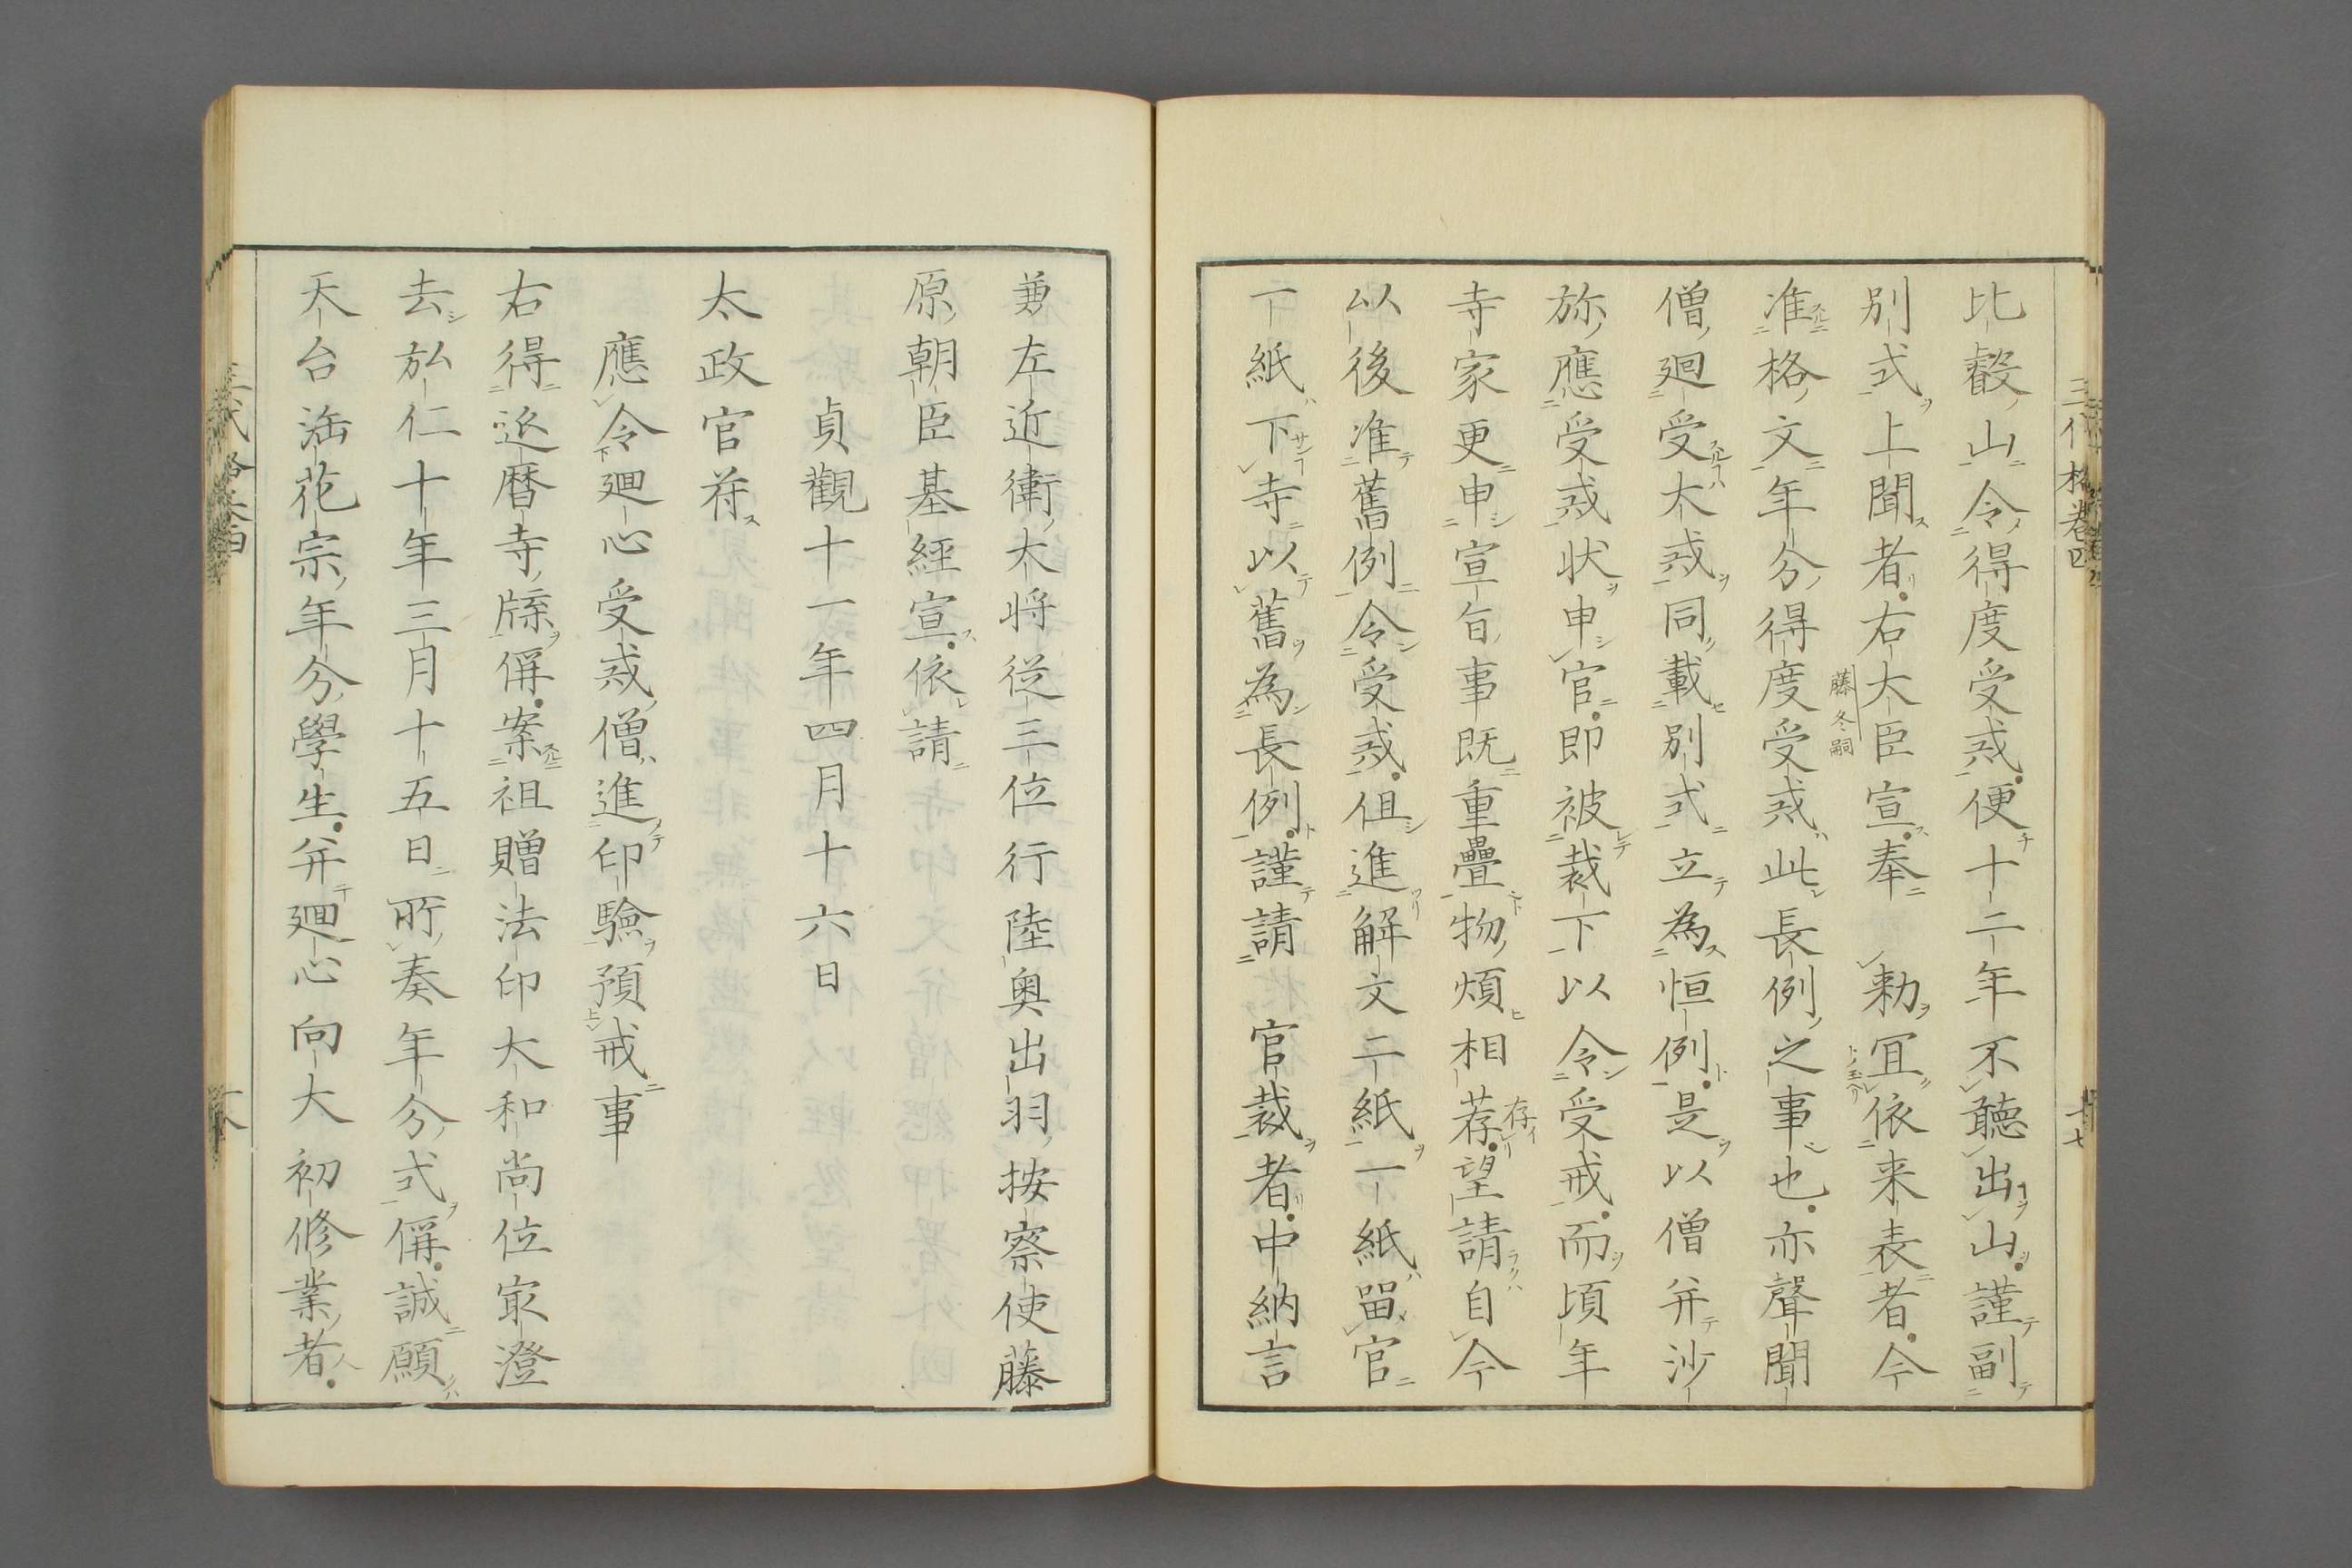 比叡山令得度受戒便十二年不聽出山謹副
別式上聞者右大臣宣奉 勅冝依来表者今
藤冬嗣
准格文年分得度受戒此長例之事也亦聲聞
僧廻受大戒同載別式立為恒例是以僧并沙
弥應受戒状申官即被裁下以令受戒而頃年
寺家更申宣旨事既重疊物煩相荐望請自今
存イ
以後准舊例令受戒但進解文二紙一紙留官
一紙下寺以舊為長例謹請 官裁者中納言
兼左近衛大将従三位行陸奥出羽按察使藤
原朝臣基經宣依請
貞觀十一年四月十六日
太政官符
應令廻心受戒僧進印驗預戒事
右得延暦寺牒偁案祖贈法印大和尚位冣澄
去弘仁十年三月十五日所奏年分式偁誠願
天台法花宗年分學生并廻心向大初修業者
三代格卷四
十七